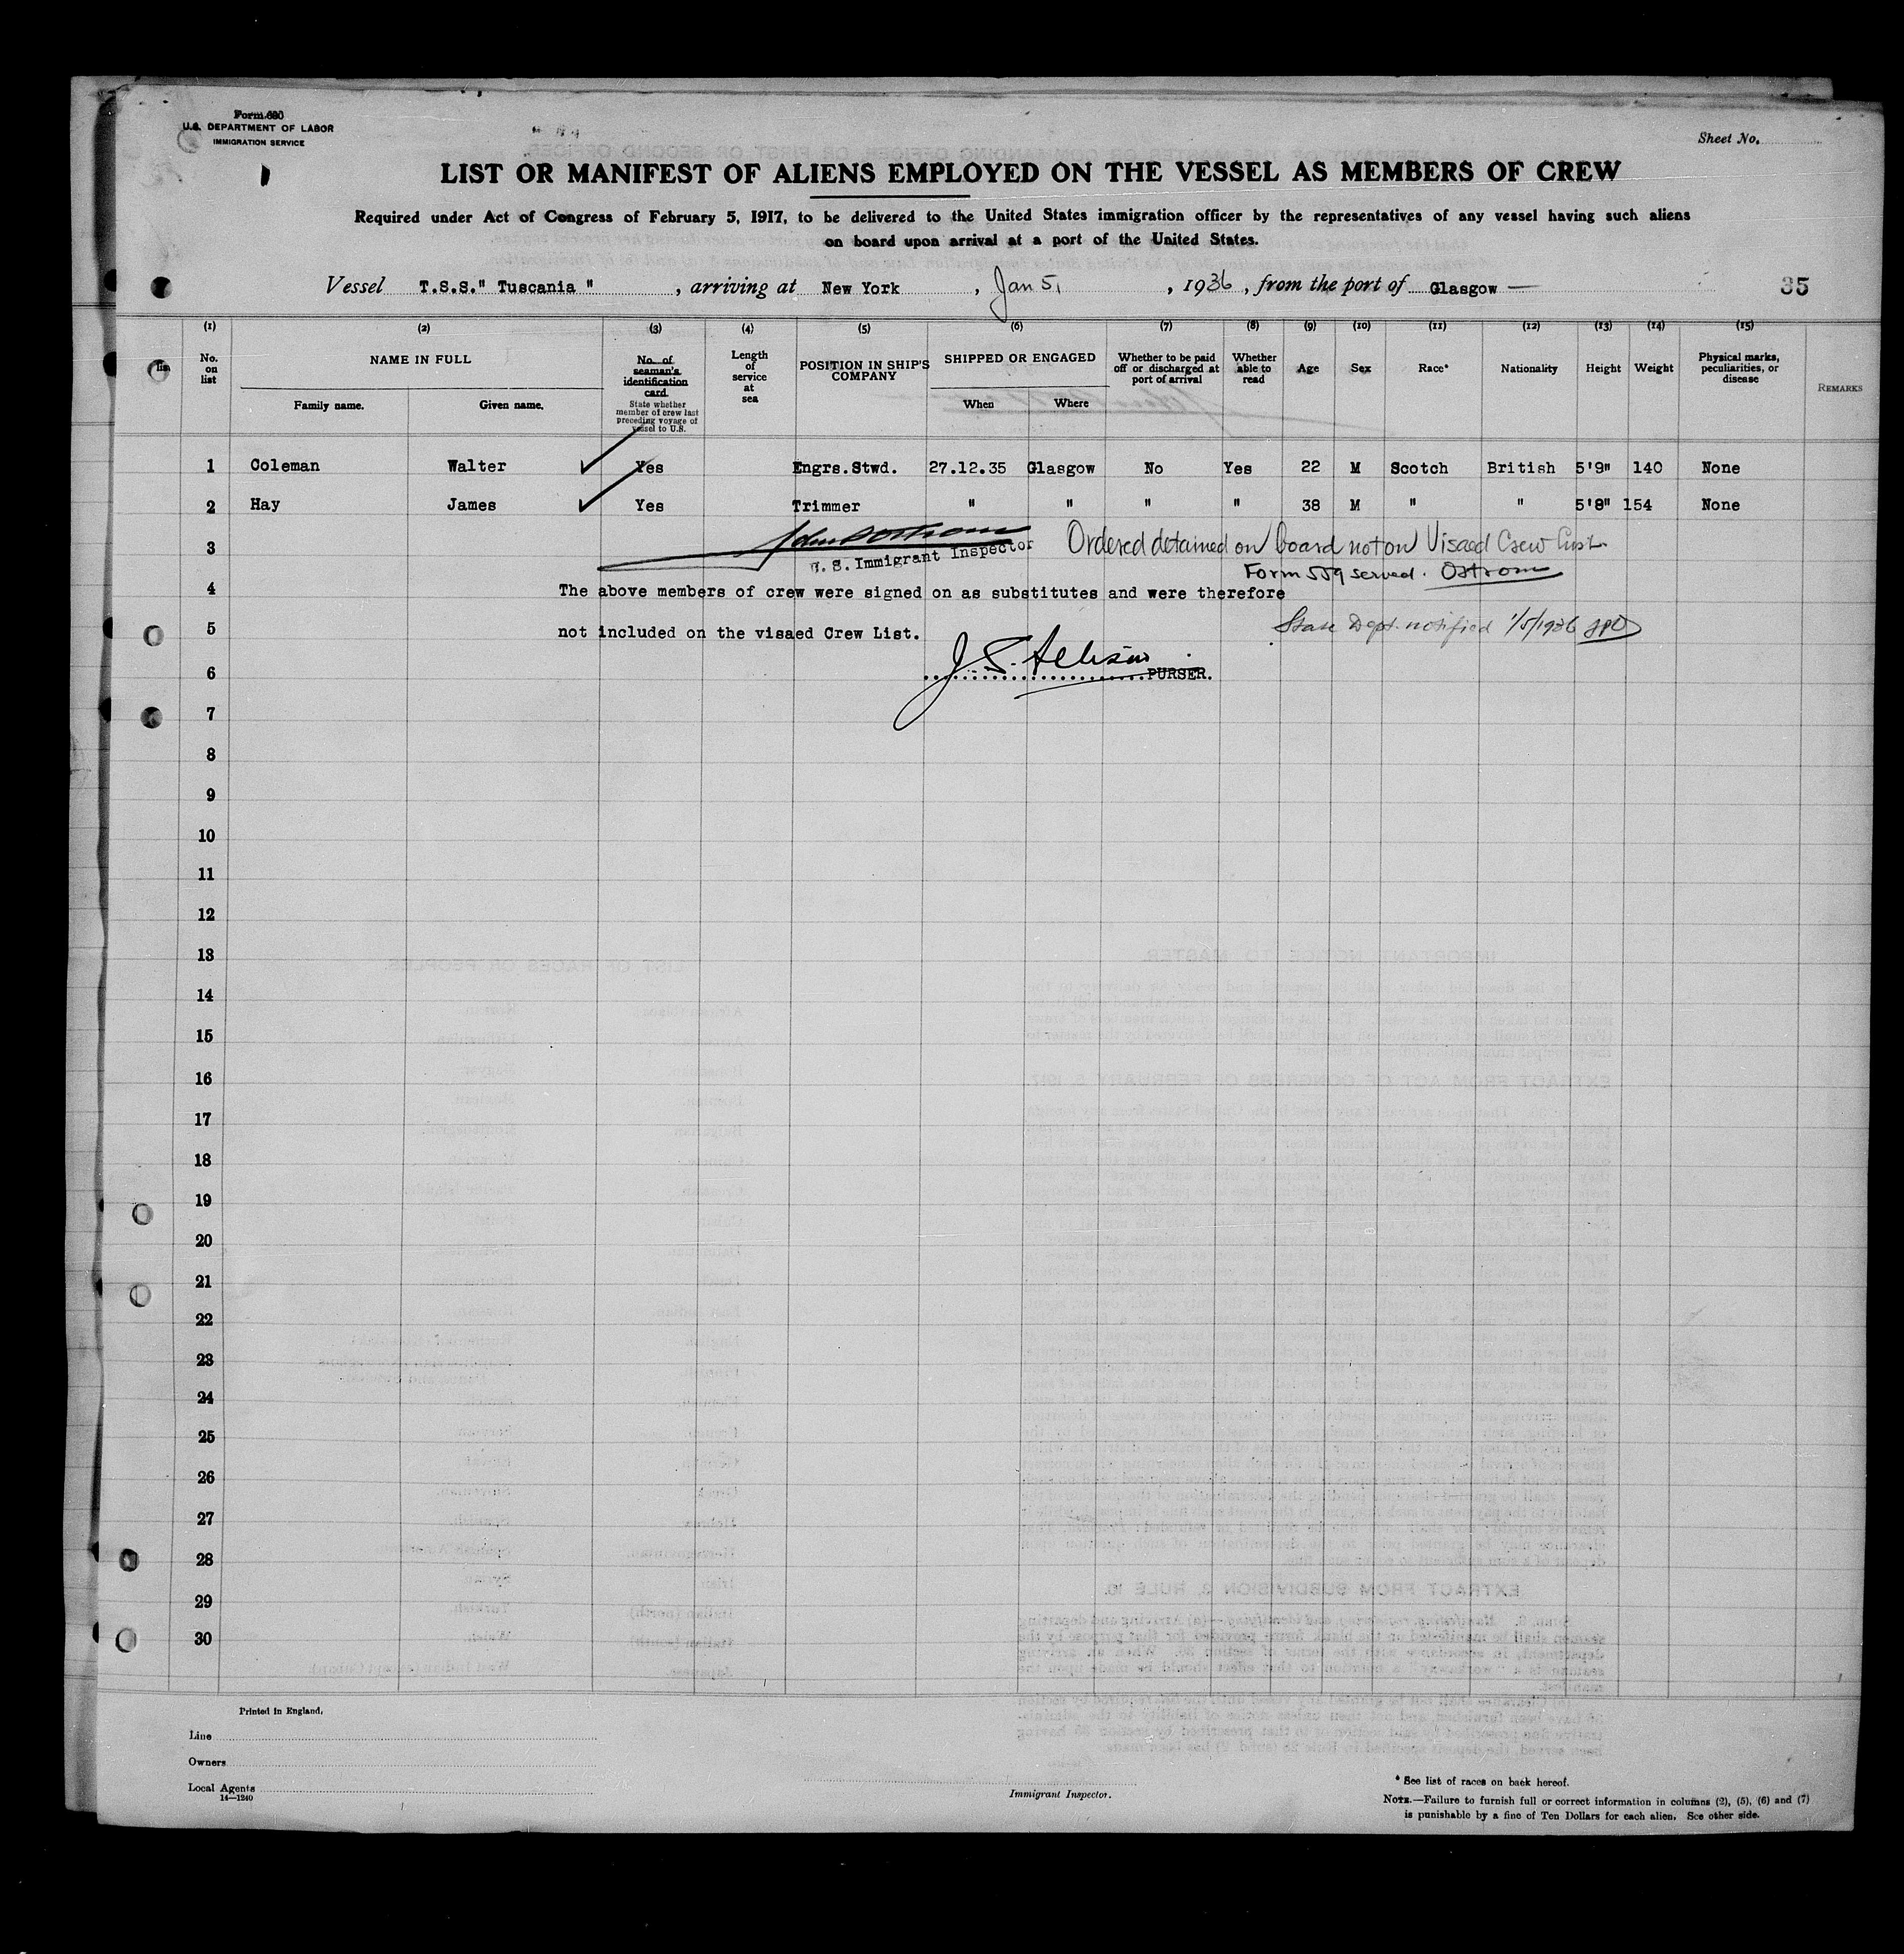 Form 680
U.S. DEPARTMENT OF LABOR
IMMIGRATION SERVICE
Sheet No.
LIST OR MANIFEST OF ALIENS EMPLOYED ON THE VESSEL AS MEMBERS OF CREW
Required under Act of Congress of February 5, 1917, to be delivered to the United States immigration officer by the representatives of any vessel having such aliens
on board upon arrival at a port of the United States.
Vessel T.S.S." Tuscania ", arriving at New York, Jan 5, 1936, from the port of Glasgow — 35
(1) (2) (3) (4) (5) (6) (7) (8) (9) (10) (11) (12) (13) (14) (15)
No. on list
NAME IN FULL
Family name. Given name.
No. of seaman's identification card.
State whether member of crew last preceding voyage of vessel to U.S.
Length of service at sea
POSITION IN SHIP'S COMPANY
SHIPPED OR ENGAGED
When Where
Whether to be paid off or discharged at port of arrival
Whether able to read
Age
Sex
Race*
Nationality
Height
Weight
Physical marks, peculiarities, or disease
REMARKS
1 Coleman Walter ✓ Yes Engrs.Stwd. 27.12.35 Glasgow No Yes 22 M Scotch British 5'9" 140 None
2 Hay James ✓ Yes Trimmer " " " " 38 M " " 5'8" 154 None
3 Ordered detained on board not on Visaed Crew List.
U. S. Immigrant Inspector
Form 559 served. Ostrom
4 The above members of crew were signed on as substitutes and were therefore
5 not included on the visaed Crew List.
State Dept. notified 1/5/1936
6 PURSER.
7
8
9
10
11
12
13
14
15
16
17
18
19
20
21
22
23
24
25
26
27
28
29
30
Printed in England.
Line
Owners
Local Agents
14—1240
Immigrant Inspector.
* See list of races on back hereof.
NOTE.—Failure to furnish full or correct information in columns (2), (5), (6) and (7)
is punishable by a fine of Ten Dollars for each alien. See other side.